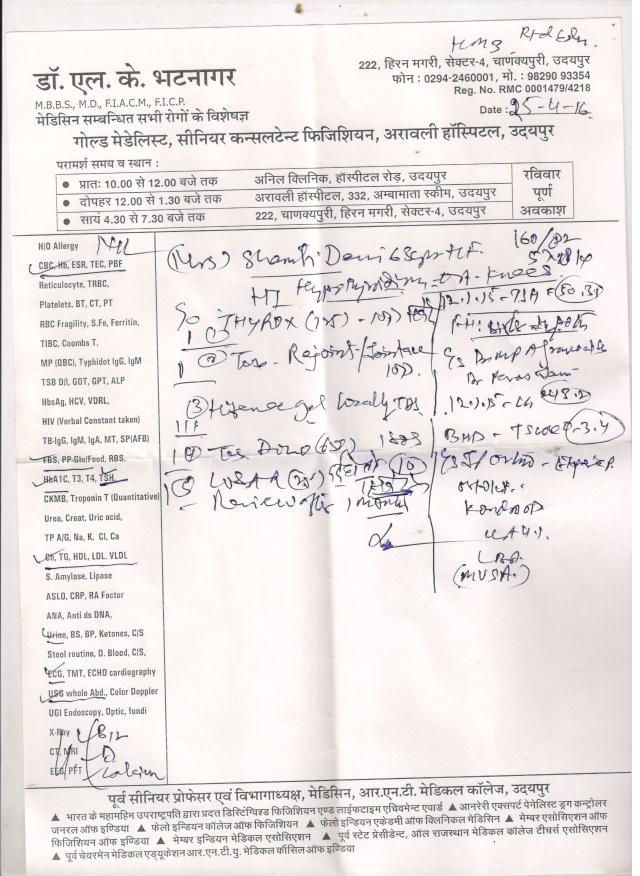 डॉ. एल. के. भटनागर
M.B.B.S., M.D., F.I.A.C.M., F.I.C.P.
मेडिसिन सम्बन्धित सभी रोगों के विशेषज्ञ
222, हिरन मगरी, सेक्टर-4, चाणक्यपुरी, उदयपुर
फोन : 0294-2460001, मो. : 98290 93354
Reg. No. RMC 0001479/4218
Date : 25-4-16
गोल्ड मेडेलिस्ट, सीनियर कन्सलटेन्ट फिजिशियन, अरावली हॉस्पिटल, उदयपुर
परामर्श समय व स्थान :
● प्रातः 10.00 से 12.00 बजे तक अनिल क्लिनिक, हॉस्पीटल रोड़, उदयपुर
● दोपहर 12.00 से 1.30 बजे तक अरावली हॉस्पिटल, 332, अम्बामाता स्कीम, उदयपुर
● सायं 4.30 से 7.30 बजे तक 222, चाणक्यपुरी, हिरन मगरी, सेक्टर-4, उदयपुर
रविवार
पूर्ण
अवकाश
H/O Allergy Nil
CBC, Hb, ESR, TEC, PBF
Reticulocyte, TRBC,
Platelets, BT, CT, PT
RBC Fragility, S.Fe, Ferritin,
TIBC, Coombs T.
MP (QBC), Typhidot IgG, IgM
TSB D/I, GOT, GPT, ALP
HbsAg, HCV, VDRL,
HIV (Verbal Constant taken)
TB-IgG, IgM, IgA, MT, SP(AFB)
FBS, PP-Glu/Food, RBS,
HbA1C, T3, T4, TSH,
CKMB, Troponin T (Quantitative)
Urea, Creat, Uric acid,
TP A/G, Na, K, Cl, Ca
Ch, TG, HDL, LDL, VLDL
S. Amylase, Lipase
ASLO, CRP, RA Factor
ANA, Anti ds DNA,
Urine, BS, BP, Ketones, C/S
Stool routine, O. Blood, C/S,
ECG, TMT, ECHO cardiography
USG whole Abd., Color Doppler
UGI Endoscopy, Optic, fundi
X-Ray B12
CT, MRI D
EEG, PFT Calcium
(Mrs) Shanti Devi
HT Hypothyroidism - OA - Knees
THYROX (125)
② Tab. Rejoint
③ gel locally TDS
Review after 1 month
160/
12.1.15 - TSH =
12.1.15 - Ch
BMD - TScore -3.4
पूर्व सीनियर प्रोफेसर एवं विभागाध्यक्ष, मेडिसिन, आर.एन.टी. मेडिकल कॉलेज, उदयपुर
▲ भारत के महामहिम उपराष्ट्रपति द्वारा प्रदत्त डिस्टिंग्विश्ड फिजिशियन एण्ड लाईफटाइम एचिवमेन्ट एवार्ड ▲ आनरेरी एक्सपर्ट पेनेलिस्ट ड्रग कन्ट्रोलर
जनरल ऑफ इण्डिया ▲ फेलो इन्डियन कॉलेज ऑफ फिजिशियन ▲ फेलो इन्डियन एकेडमी ऑफ क्लिनिकल मेडिसिन ▲ मेम्बर एसोसिएशन ऑफ
फिजिशियन ऑफ इण्डिया ▲ मेम्बर इन्डियन मेडिकल एसोसिएशन ▲ पूर्व स्टेट प्रेसीडेन्ट, ऑल राजस्थान मेडिकल कॉलेज टीचर्स एसोसिएशन
▲ पूर्व चेयरमेन मेडिकल एड्यूकेशन आर.एन.टी.यु. मेडिकल कौंसिल ऑफ इण्डिया